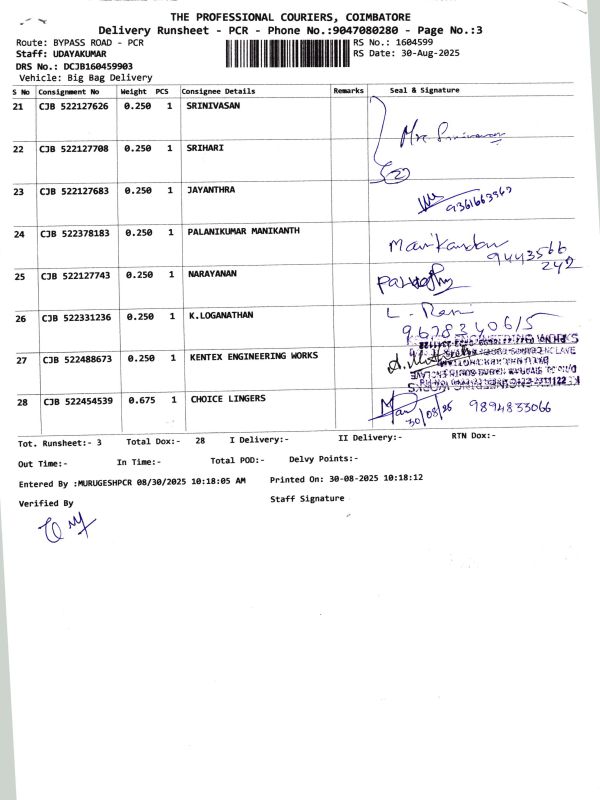 THE PROFESSIONAL COURIERS, COIMBATORE
Delivery Runsheet - PCR - Phone No.:9047080280 - Page No.:3
Route: BYPASS ROAD - PCR RS No.: 1604599
Staff: UDAYAKUMAR RS Date: 30-Aug-2025
DRS No.: DCJB160459903
Vehicle: Big Bag Delivery
S No Consignment No Weight PCS Consignee Details Remarks Seal & Signature
21 CJB 522127626 0.250 1 SRINIVASAN
22 CJB 522127708 0.250 1 SRIHARI
(2)
23 CJB 522127683 0.250 1 JAYANTHRA
24 CJB 522378183 0.250 1 PALANIKUMAR MANIKANTH Manikandan
9443566
242
25 CJB 522127743 0.250 1 NARAYANAN
26 CJB 522331236 0.250 1 K.LOGANATHAN L. Rani
27 CJB 522488673 0.250 1 KENTEX ENGINEERING WORKS
28 CJB 522454539 0.675 1 CHOICE LINGERS 9894833066
Tot. Runsheet:- 3 Total Dox:- 28 I Delivery:- II Delivery:- RTN Dox:-
Out Time:- In Time:- Total POD:- Delvy Points:-
Entered By :MURUGESHPCR 08/30/2025 10:18:05 AM Printed On: 30-08-2025 10:18:12
Verified By Staff Signature